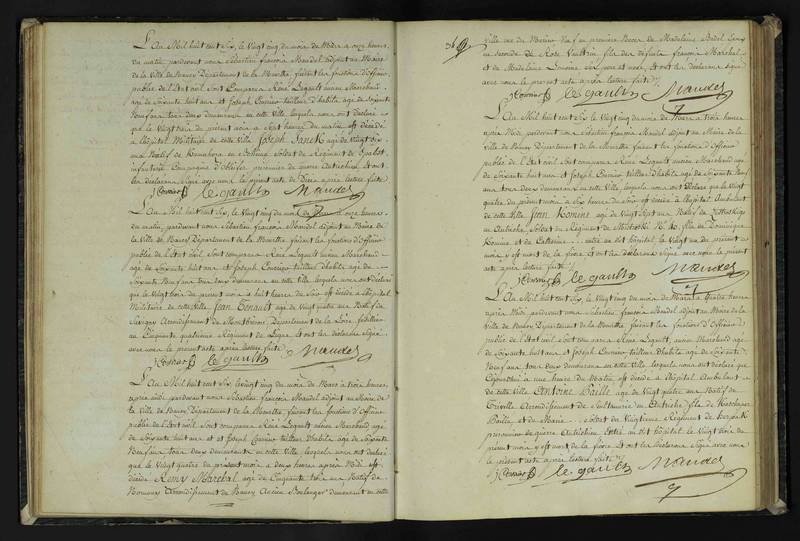 L'An Mil huit cent Six, le Vingt cinq du mois de Mars a onze heures
du matin pardevant nous Sébastien françois Mandel adjoint au Maire
de la Ville de Nancy Département de la Meurthe, faisant les fonctions d'Officier
public de l'Etat civil, sont comparus René Legault ancien Marchand
agé de Soixante huit ans et Joseph Cournier tailleur d'habits agé de Soixante
Neuf ans tous deux demeurans en cette Ville lesquels nous ont déclaré
que le Vingt trois du présent mois a Sept heures du matin est décédé
a l'hôpital Militaire de cette Ville Joseph Janek agé de Vingt six
ans Natif de en Soldat du Régiment de
infanterie Compagnie prisonnier de guerre Autrichien Et ont
les déclarans Signé avec nous le présent acte de Décès après lecture faite
J Cournier le gault Mandel
L'An Mil huit cent Six, le Vingt cinq du mois de Mars onze heures
du matin, pardevant nous Sébastien françois Mandel adjoint au Maire de
la Ville de Nancy Département de la Meurthe, faisant les fonctions d'Officier
public de l'Etat civil, sont comparus René Legault ancien Marchand
agé de Soixante huit ans et Joseph Cournier tailleur d'habits agé de
Soixante Neuf ans tous deux demeurans en cette Ville lesquels nous ont déclaré
que le Vingt trois du présent mois a huit heures du Soir est décédé a l'hôpital
Militaire de cette Ville Jean agé de Vingt quatre ans Natif de
Arrondissement de Montbrison Département de la Loire, fusillier
au Cinquante quatrième Régiment de Ligne Et ont les déclarans Signé
avec nous le présent acte après lecture faite
J Cournier le gault Mandel
L'An Mil huit cent Six, le Vingt cinq du mois de Mars a trois heures
après midi pardevant nous Sébastien françois Mandel adjoint au Maire de
la Ville de Nancy Département de la Meurthe, faisant les fonctions d'Officier
public de l'Etat civil, sont comparus René Legault ancien Marchand agé
de Soixante huit ans et Joseph Cournier tailleur d'habits agé de Soixante
Neuf ans tous deux demeurans en cette Ville, lesquels nous ont déclaré
que le Vingt quatre du présent mois a deux heures après Midi est
décédé Remy Marchal agé de Cinquante trois ans Natif de
Arrondissement de Nancy Ancien Boulanger demeurant en cette
36
Ville rue du Moulin Veuf en premières Noces de Madelaine
en secondes de Rose fils des défunts françois Marchal
et de Madelaine Et ont les déclarans Signé
avec nous le présent acte après lecture faite
J Cournier le gault Mandel
L'An Mil huit cent Six, le Vingt cinq du mois de Mars a trois heures
après Midi, pardevant nous Sébastien françois Mandel adjoint au Maire de la
Ville de Nancy Département de la Meurthe, faisant les fonctions d'Officier
public de l'Etat civil sont comparus René Legault ancien Marchand agé
de Soixante huit ans et Joseph Cournier tailleur d'habits agé de Soixante Neuf
ans tous deux demeurans en cette Ville, lesquels nous ont déclaré que le Vingt
quatre du présent mois a six heures du Soir est décédé a l'hôpital Ambulant
de cette Ville Jean agé de Vingt sept ans Natif de
en Autriche, Soldat au Régiment de fils de Dominique
et de Catherine entré au dit hôpital le Vingt un du présent
mois y est mort de la fievre Et ont les déclarans Signé avec nous le présent
acte après lecture faite
J Cournier le gault Mandel
L'An Mil huit cent Six, le Vingt cinq du mois de Mars a quatre heures
après Midi, pardevant nous Sébastien françois Mandel adjoint au Maire de la
Ville de Nancy Département de la Meurthe, faisant les fonctions d'Officier
public de l'Etat civil sont comparus René Legault, ancien Marchand agé
de Soixante huit ans et Joseph Cournier tailleur d'habits agé de Soixante
Neuf ans tous deux demeurans en cette Ville lesquels nous ont déclaré que
Cejourdhui a une heure du Matin est décédé a l'hôpital Ambulant
de cette Ville Antoine Baille agé de Vingt quatre ans Natif de
Arrondissement de en Autriche fils de
et de Marie Soldat du Vingtième Régiment de
prisonnier de guerre Autrichien Entré au dit hôpital le Vingt trois du
présent mois y est mort de la fievre Et ont les déclarans Signé avec nous
le présent acte après lecture faite
J Cournier le gault Mandel